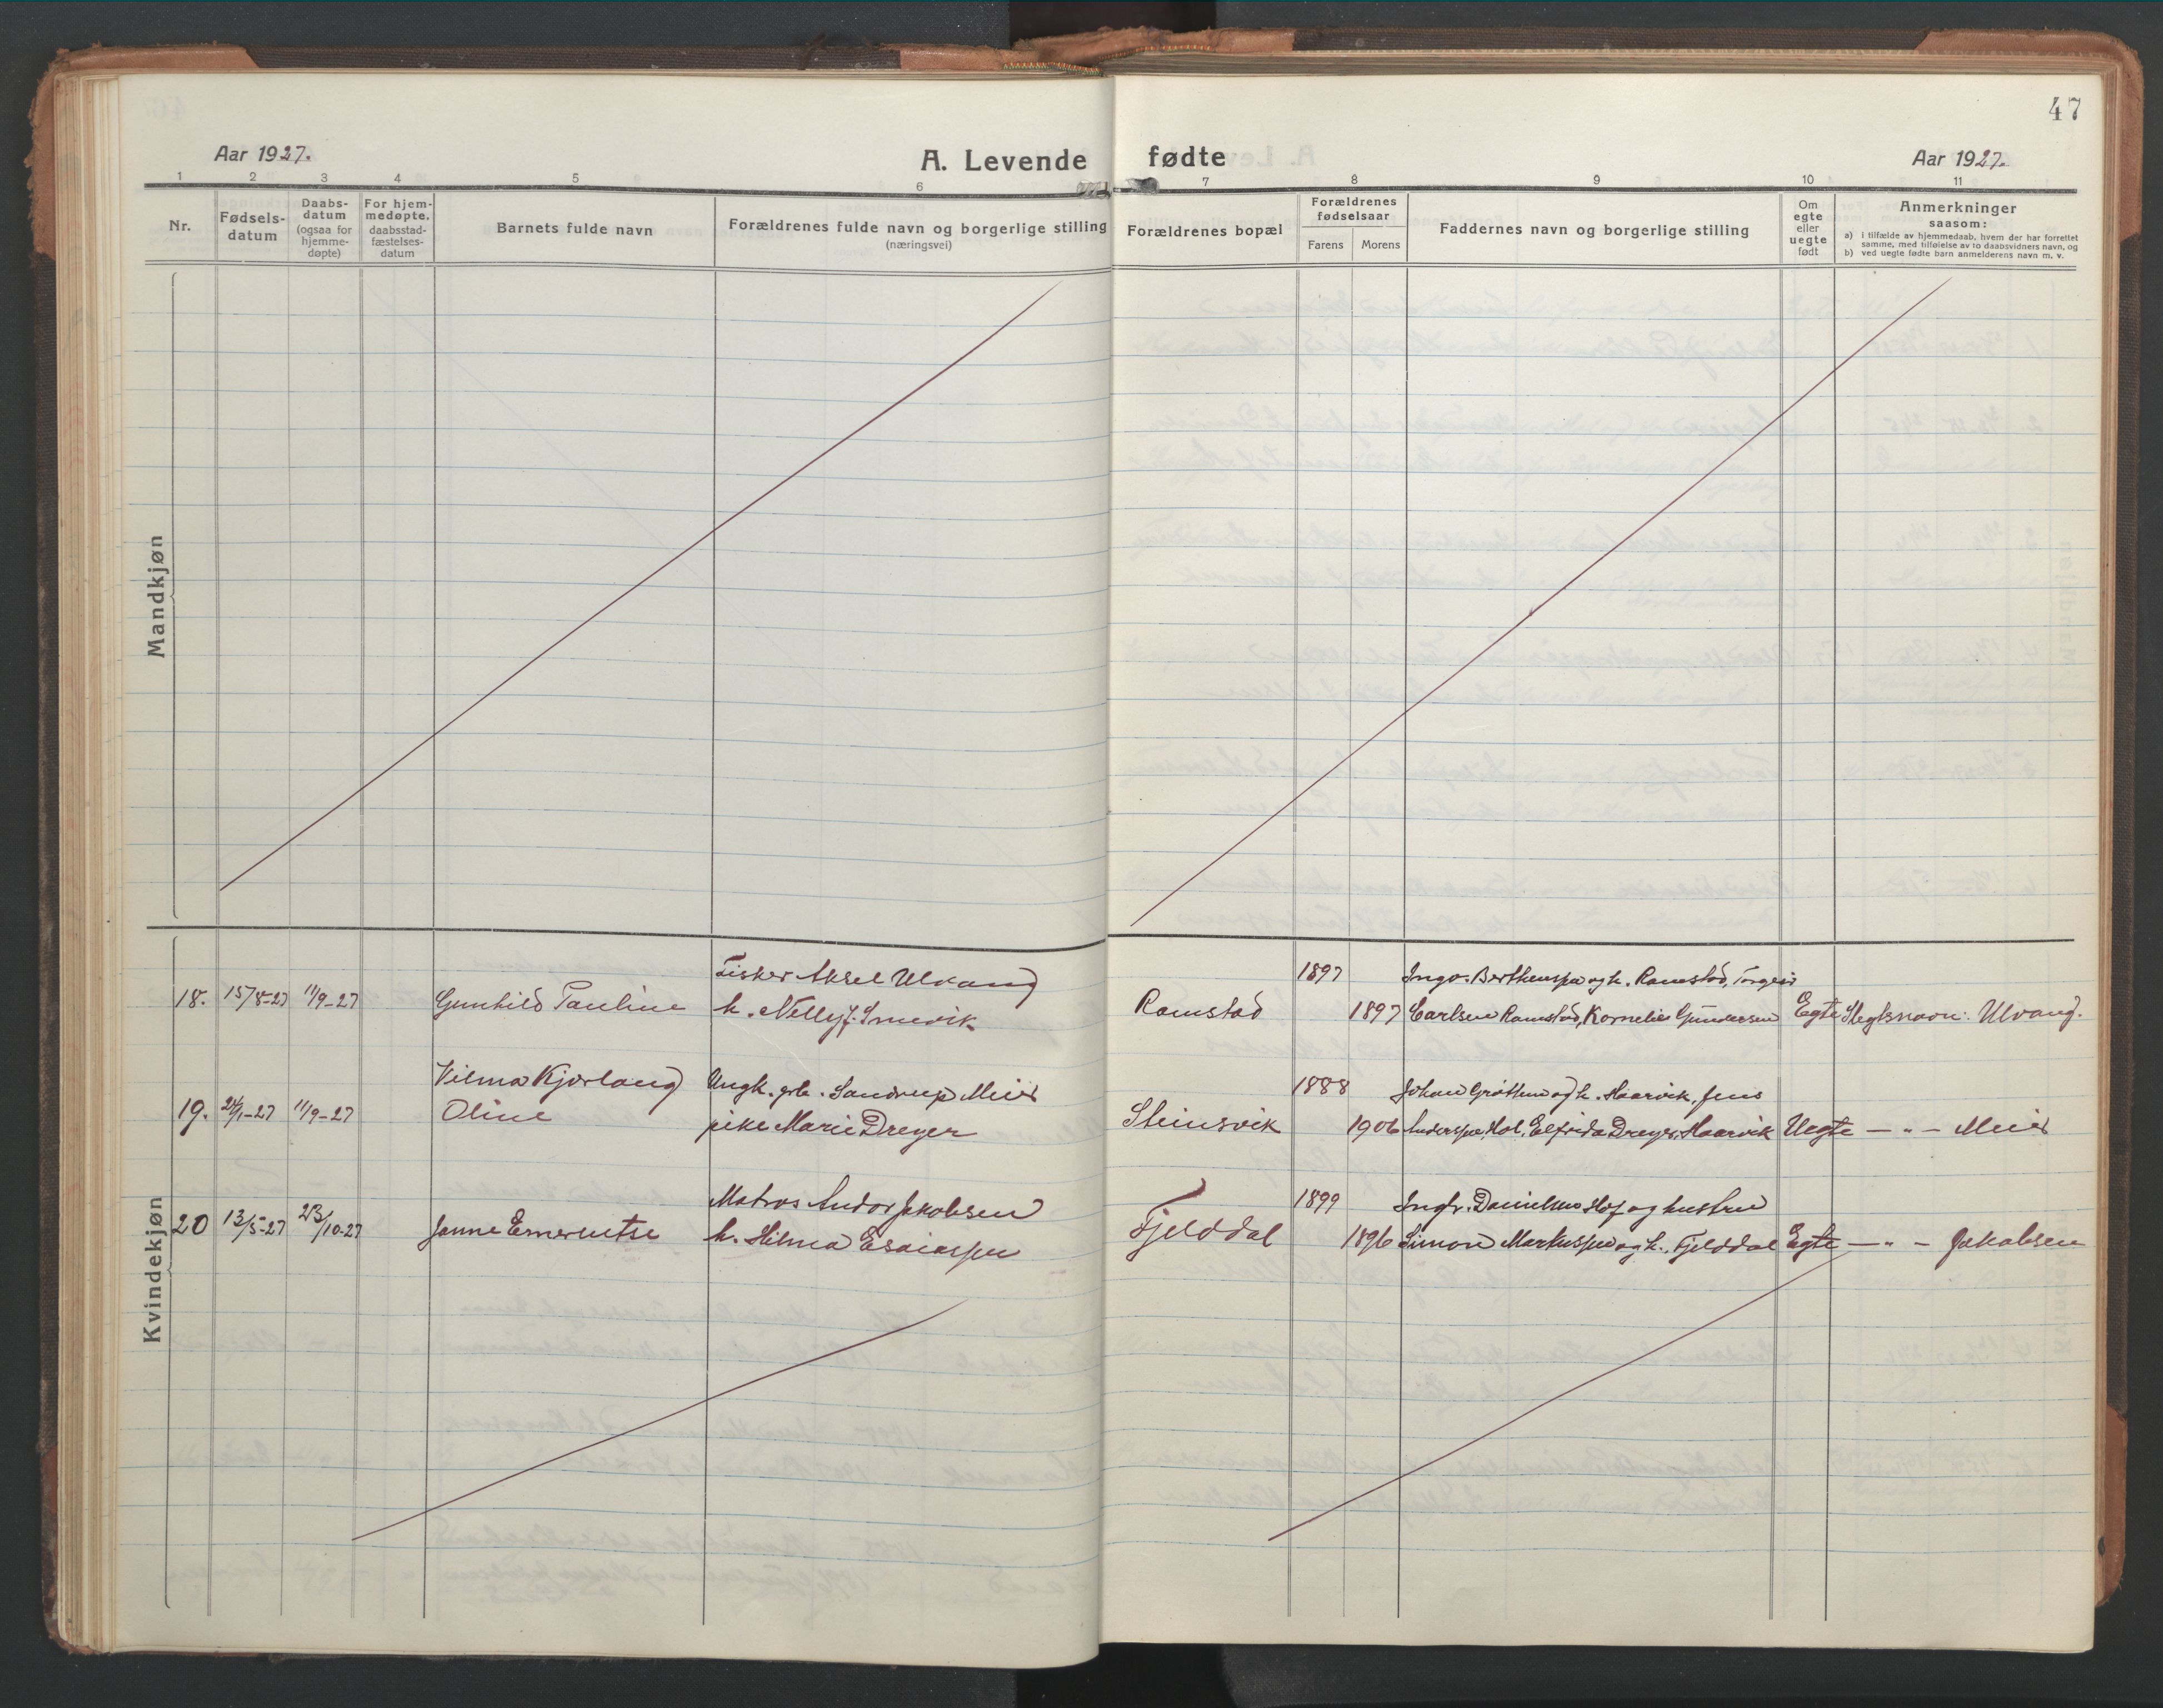 47
Aar 1927.
A. Levende fødte
Aar 1927.
1 2 3 4 5 6 7 8 9 10 11
Nr.
Fødsels-
datum
Daabs-
datum
(ogsaa for
hjemme-
døpte)
For hjem-
medøpte.
daabsstad-
fæstelses-
datum
Barnets fulde navn
Forældrenes fulde navn og borgerlige stilling
(næringsvei)
Forældrenes bopæl
Forældrenes
fødselsaar
Farens Morens
Faddernes navn og borgerlige stilling
Om
egte
eller
uegte
født
Anmerkninger
saasom:
a) i tilfælde av hjemmedaab, hvem der har forrettet
samme, med tilføielse av to daabsvidners navn, og
b) ved uegte fødte barn anmelderens navn m. v.
Mandkjøn
Kvindekjøn
Fisker Aksel Ulvang 1897 Ingv. Berthensen og h. Ramstad, Torgeir
18. 15/8-27 11/9-27 Gunhild Pauline h. Nelly J. Smevik Ramstad 1897 Carlsen Ramstad, Kornelie Gundersen Egte Slegtsnavn: Ulvang.
Vilma Kjørlaug Ungk. grb. Sandrup Meier 1888 Johan Grøttem og h. Haarvik, Jens
19. 24/1-27 11/9-27 Oline pike Marie Dreyer Steinsvik 1906 Anderssen, Hol, Elfrida Dreyer, Haarvik Uegte — " — Meier
Matros Andor Jakobsen 1899 Ingv. Danielsen Hof og hustru
20 13/5-27 23/10-27 Janne Emerentse h. Hilma Esaiassen Fjelddal 1896 Simon Markussen og h., Fjelddal Egte — " — Jakobsen